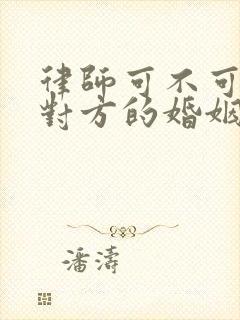 律師可不可
對方的婚姻
潘濤